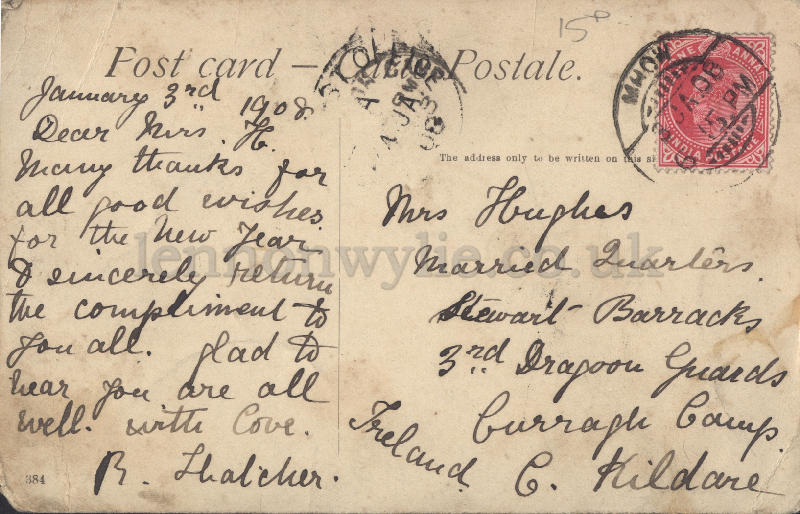 Post card – Carte Postale.
15
MHOW
ONE ANNA
INDIA
The address only to be written on this
January 3rd 1908.
Dear Mrs H.
Many thanks for
all good wishes
for the New Year.
& sincerely return
the compliment to
you all. glad to
hear you are all
well. with Love.
R. Thatcher.
384
Mrs Hughes
Married Quarters.
Stewart Barracks
3rd Dragoon Guards
Curragh Camp.
C. Kildare
Ireland.
lennonwylie.co.uk